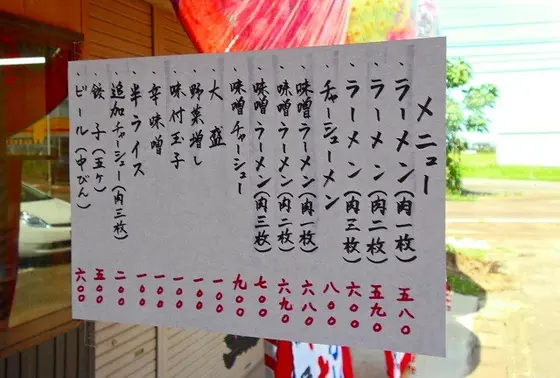 メニュー
、ラーメン(肉一枚) 五八〇
、ラーメン(肉二枚) 五九〇
、ラーメン(肉三枚) 六〇〇
、チャーシューメン 八〇〇
、味噌ラーメン(肉一枚) 六八〇
、味噌ラーメン(肉二枚) 六九〇
、味噌ラーメン(肉三枚) 七〇〇
、味噌チャーシュー 九〇〇
、大盛 一〇〇
、野菜増し 一〇〇
、味付玉子 一〇〇
、辛味噌 一〇〇
、半ライス 一〇〇
、追加チャーシュー(肉三枚) 二〇〇
、餃子(五ケ) 五〇〇
、ビール(中びん) 六〇〇